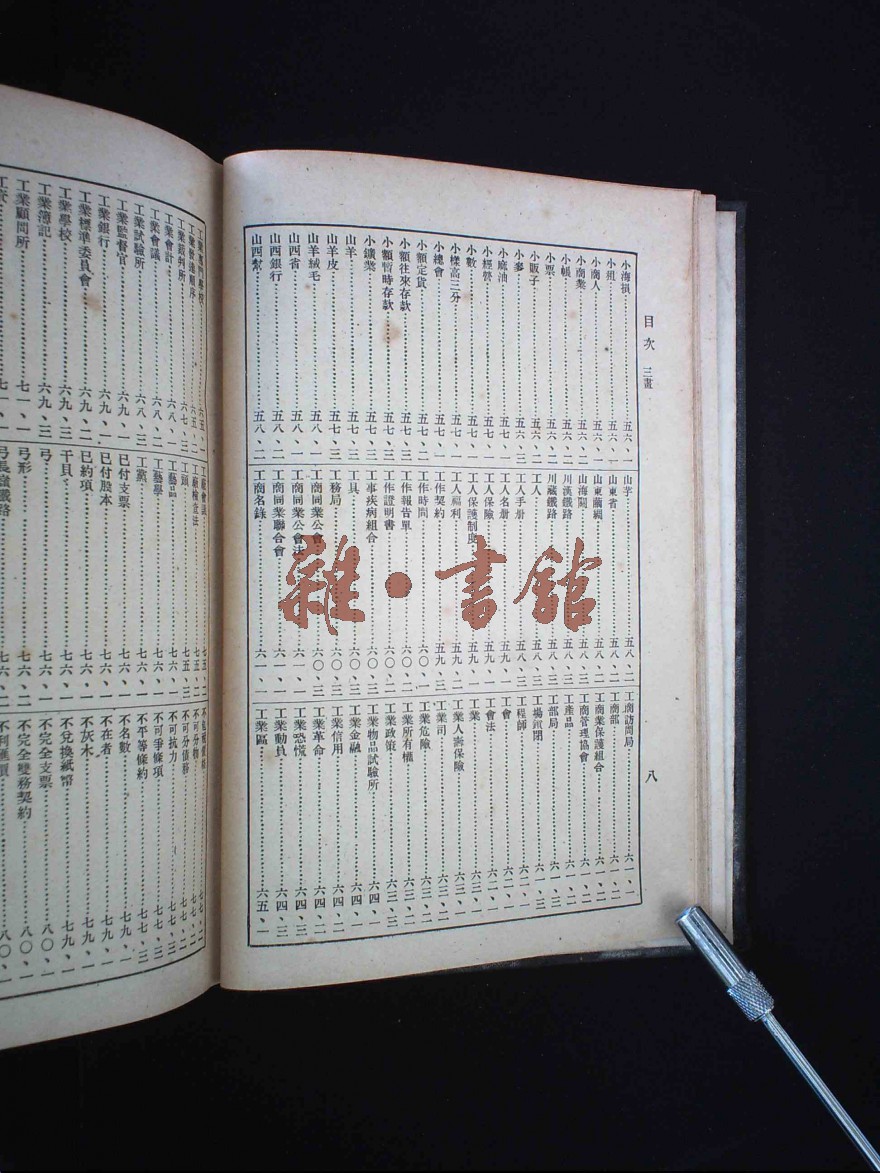 目次 三畫
八
小海損……五六、一
小組……五六、一
小商人……五六、一
小商業……五六、二
小帳……五六、二
小票……五六、二
小販子……五六、二
小麥……五六、三
小麻油……五七、一
小經營……五七、一
小數……五七、一
小樣高二分……五七、一
小總會……五七、二
小額定貨……五七、二
小額往來存款……五七、三
小額暫時存款……五七、三
小鑛業……五七、三
山羊……五七、三
山羊皮……五七、三
山羊絨毛……五八、一
山西省……五八、一
山西銀行……五八、二
山西幫……五八、二
山芋……五八、二
山東省……五八、二
山東繭綢……五八、二
山海關……五八、三
川漢鐵路……五八、三
川藏鐵路……五八、三
工人……五八、三
工人手册……五八、三
工人名册……五九、一
工人保險……五九、一
工人保護制度……五九、二
工人福利……五九、二
工作契約……五九、三
工作時間……六〇、一
工作報告單……六〇、二
工作證明書……六〇、二
工事疾病組合……六〇、三
工具……六〇、三
工務局……六〇、三
工商同業公會……
工商同業公會法……六一、一
工商同業聯合會……六一、一
工商名錄……六一、一
工商訪問局……六一、一
工商部……六一、二
工商業保護組合……六一、二
工商管理協會……六一、二
工產品……六一、二
工部局……六一、二
工場鎖閉……六一、三
工程師……六二、一
工會……六二、一
工會法……六二、一
工業……六三、一
工業人壽保險……六三、二
工業司……六三、二
工業危險……六三、二
工業所有權……六三、二
工業政策……六三、三
工業物品試驗所……六四、一
工業金融……六四、一
工業信用……六四、二
工業革命……六四、二
工業恐慌……六四、三
工業動員……六四、三
工業區……六五、一
工業專門學校……六五、一
工業裁判所……六七、三
工業會計……六八、一
工業會議……六八、二
工業試驗所……六八、三
工業監督官……六九、一
工業銀行……六九、一
工業標準委員會……六九、二
工業學校……六九、三
工業簿記……六九、三
工業顧問所……七一、一
工資……七一、
工廠會議……七五、二
工廠檢查法……七五、二
工頭……七五、三
工藝品……七六、一
工藝學……七六、一
工黨……七六、一
已付支票……七六、一
已付股本……七六、一
已約項……七六、一
干貝……七六、一
弓……七六、一
弓形……七六、二
弓長嶺鐵路……七六、二
不可分物……七七、二
不可分債務……七七、二
不可抗力……七七、二
不可爭條項……七七、三
不平等條約……七七、三
不名數……七九、一
不在者……七九、一
不灰木……七九、一
不兌換紙幣……七九、一
不完全支票……八〇、一
不完全雙務契約……八〇、一
不利匯價……八〇、一
雜·書館